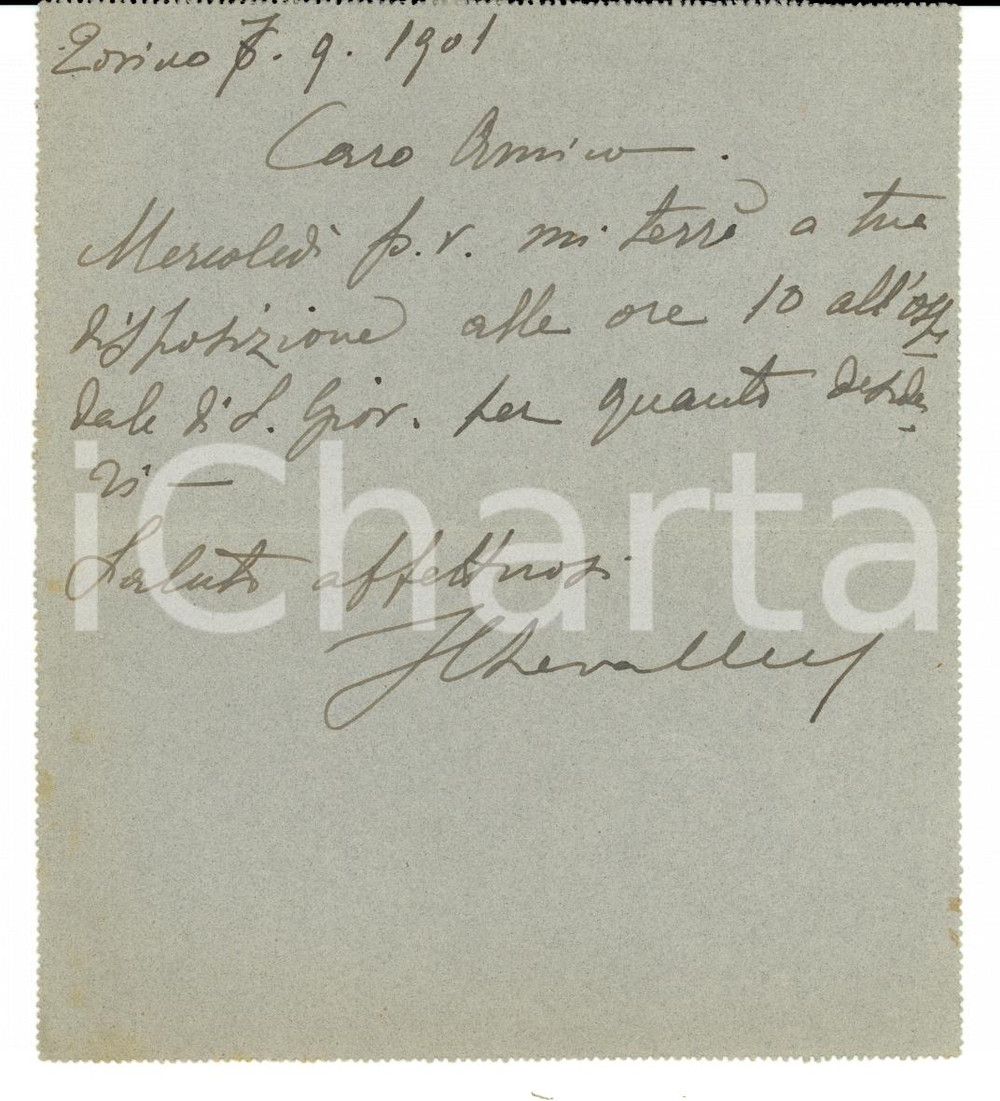 Torino 7. 9. 1901
Caro Amico.
Mercoledì p. v. mi terrò a tua
disposizione alle ore 10 all'ospe
dale di S. Giov. per quanto deside
ri —
Saluti affettuosi
iCharta